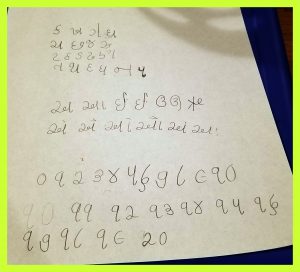 ક ખ ગ ઘ
ચ છ જ ઝ
ટ ઠ ડ ઢ ણ
ત થ દ ધ ન પ
અ આ ઇ ઈ ઉ ઊ ઋ
એ ઐ ઓ ઔ અં અઃ
૦ ૧ ૨ ૩ ૪ ૫ ૬ ૭ ૮ ૯ ૧૦
૧૦ ૧૧ ૧૨ ૧૩ ૧૪ ૧૫ ૧૬
૧૭ ૧૮ ૧૯ ૨૦